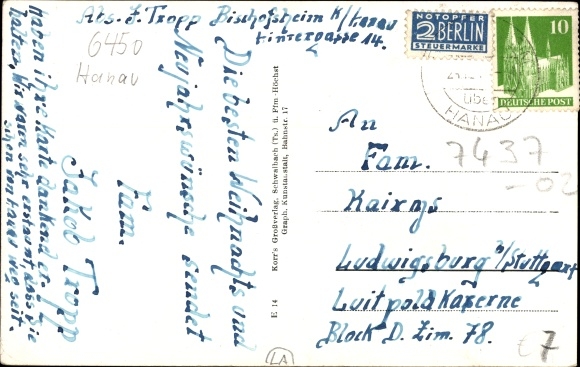 Abs. J. Tropp Bischofsheim K/Hanau
Hintergasse 14.
6450
Hanau
Die besten Weihnachts und
Neujahrswünsche sendet
Fam.
Jakob Tropp
Haben ihre Karte dankend er-
halten, Wir waren sehr erstaunt, dass Sie
schon von Hanau weg seit.
E 14
Korr's Großverlag, Schwalbach (Ts.) u. Ffm.-Höchst
Graph. Kunstanstalt, Bahnstr. 17
NOTOPFER
2 BERLIN
STEUERMARKE
10
DEUTSCHE POST
über
HANAU
An
7437
-02
Fam.
Kairys
Ludwigsburg b/Stuttgart
Luitpold Kaserne
Block D. Zim. 78.
€7
LA